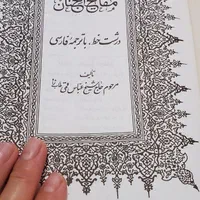 مفاتیح الجنان
درشت خط، با ترجمه فارسی
تألیف
مرحوم حاج شیخ عباس قمی